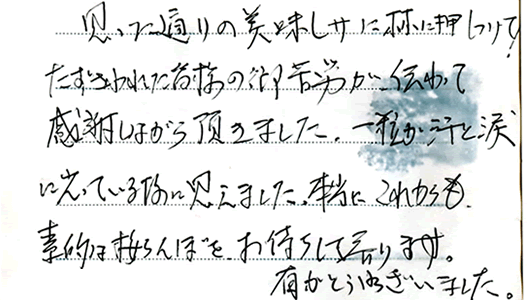 思った通りの美味しサに妹に押しつけて!
たずさわれた皆様の御苦労が、伝わって
感謝しながら頂きました。一粒が汗と涙
に光っている様に思えました。本当にこれからも
素的な桜らんぼを、お待ちして居ります。
有がとうございました。